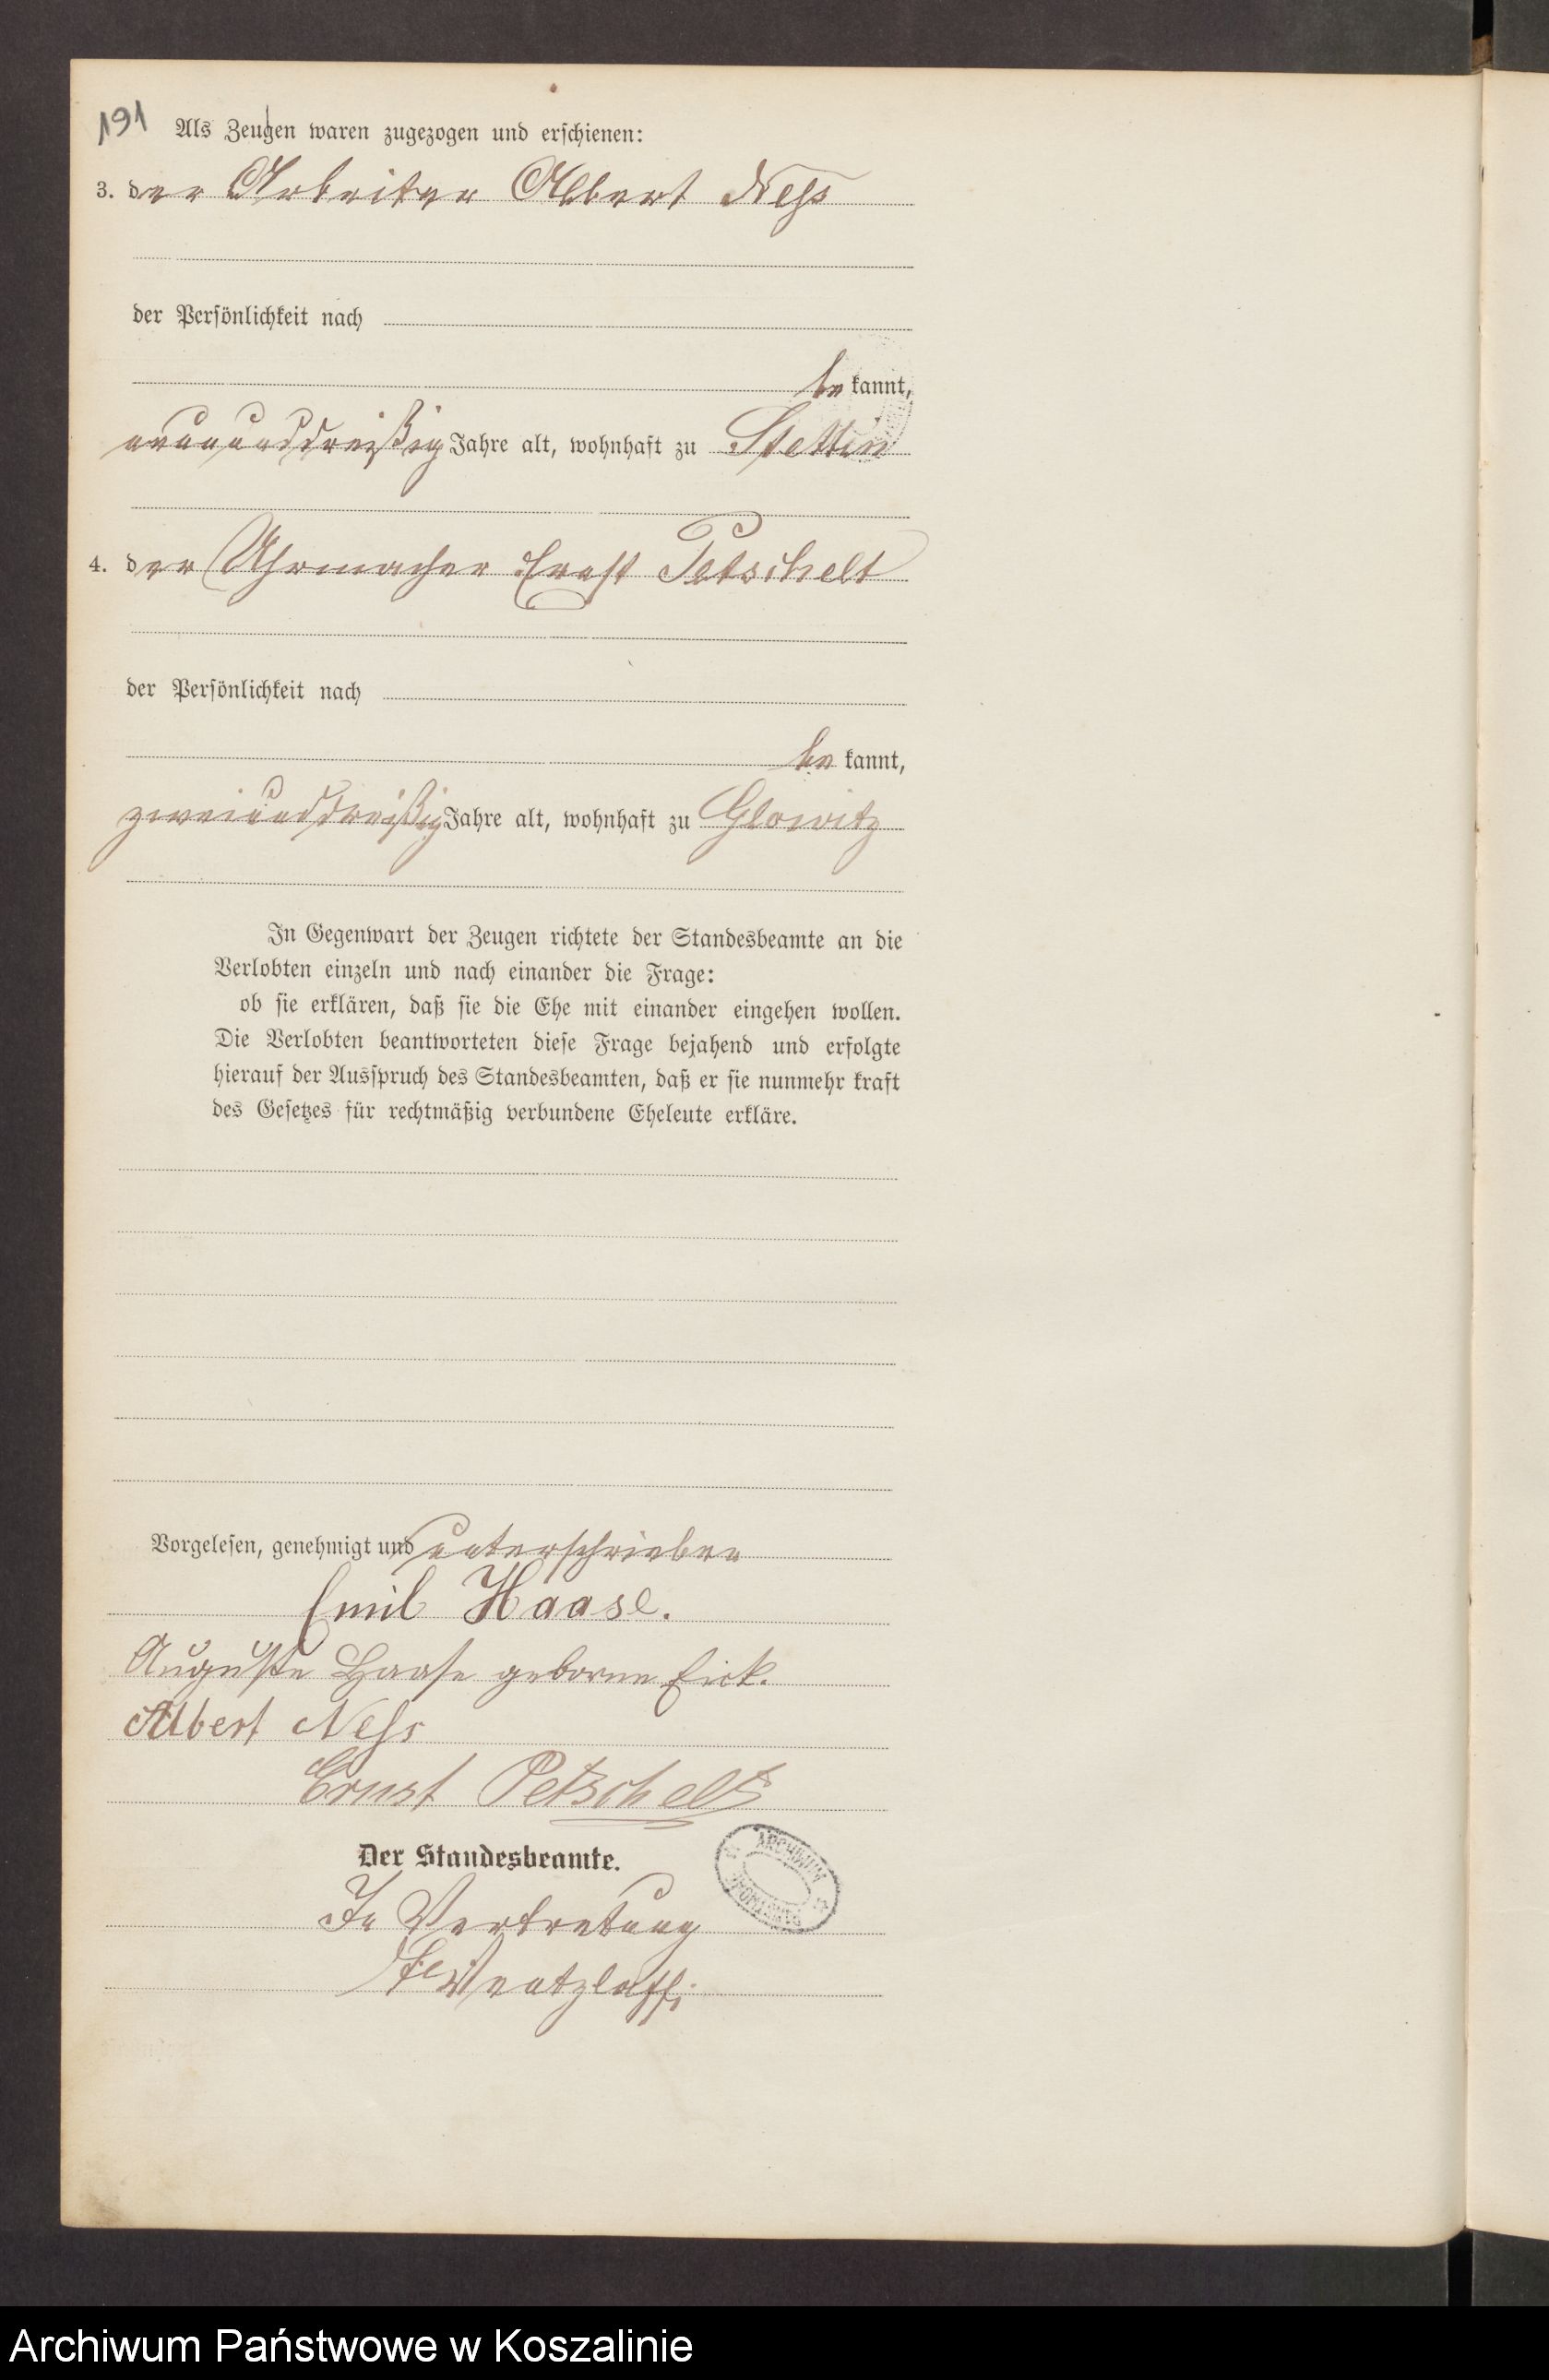 191
Als Zeugen waren zugezogen und erschienen:
3. der Arbeiter Albert Neß
der Persönlichkeit nach
be kannt,
neununddreißig Jahre alt, wohnhaft zu Stettin
4. der Uhrmacher Ernst Petschelt
der Persönlichkeit nach
be kannt,
zweiunddreißig Jahre alt, wohnhaft zu Glowitz
In Gegenwart der Zeugen richtete der Standesbeamte an die
Verlobten einzeln und nach einander die Frage:
ob sie erklären, daß sie die Ehe mit einander eingehen wollen.
Die Verlobten beantworteten diese Frage bejahend und erfolgte
hierauf der Ausspruch des Standesbeamten, daß er sie nunmehr kraft
des Gesetzes für rechtmäßig verbundene Eheleute erkläre.
Vorgelesen, genehmigt und unterschrieben
Emil Haase.
Auguste Haase geborne Eick.
Albert Neß
Ernst Petschelt
Der Standesbeamte.
ARCHIWUM
In Vertretung
Wentzlaff
Archiwum Państwowe w Koszalinie